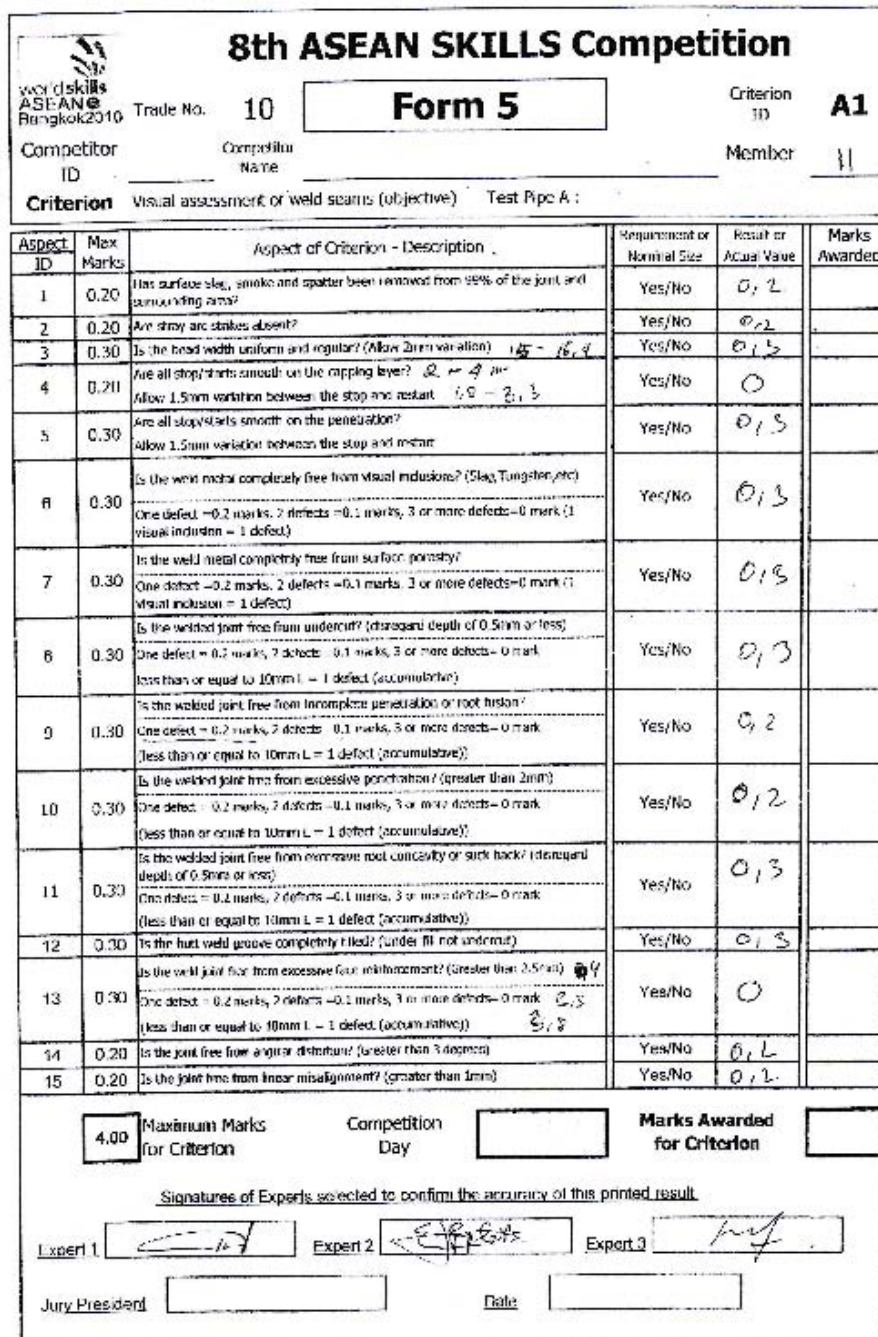 8th ASEAN SKILLS Competition
worldskills
ASEAN
Bangkok2010
Trade No. 10 Form 5 Criterion ID A1
Competitor ID Competitor Name Member 11
Criterion Visual assessment of weld seams (objective) Test Pipe A :
Aspect ID Max Marks Aspect of Criterion - Description Requirement or Nominal Size Result or Actual Value Marks Awarded
1 0.20 Has surface slag, smoke and spatter been removed from 99% of the joint and surrounding area? Yes/No 0,2
2 0.20 Are stray arc strikes absent? Yes/No 0,2
3 0.30 Is the bead width uniform and regular? (Allow 2mm variation) Yes/No 0,3
4 0.20 Are all stop/starts smooth on the capping layer?
Allow 1.5mm variation between the stop and restart Yes/No 0
5 0.30 Are all stop/starts smooth on the penetration?
Allow 1.5mm variation between the stop and restart Yes/No 0,3
6 0.30 Is the weld metal completely free from visual inclusions? (Slag,Tungsten,etc)
One defect =0.2 marks, 2 defects =0.1 marks, 3 or more defects=0 mark (1
visual inclusion = 1 defect) Yes/No 0,3
7 0.30 Is the weld metal completely free from surface porosity?
One defect =0.2 marks, 2 defects =0.1 marks, 3 or more defects=0 mark (1
visual inclusion = 1 defect) Yes/No 0,3
8 0.30 Is the welded joint free from undercut? (disregard depth of 0.5mm or less)
One defect = 0.2 marks, 2 defects =0.1 marks, 3 or more defects= 0 mark
less than or equal to 10mm L = 1 defect (accumulative) Yes/No 0,3
9 0.30 Is the welded joint free from incomplete penetration or root fusion?
One defect = 0.2 marks, 2 defects =0.1 marks, 3 or more defects= 0 mark
(less than or equal to 10mm L = 1 defect (accumulative)) Yes/No 0,2
10 0.30 Is the welded joint free from excessive penetration? (greater than 2mm)
One defect = 0.2 marks, 2 defects =0.1 marks, 3 or more defects= 0 mark
(less than or equal to 10mm L = 1 defect (accumulative)) Yes/No 0,2
11 0.30 Is the welded joint free from excessive root concavity or suck back? (disregard
depth of 0.5mm or less)
One defect = 0.2 marks, 2 defects =0.1 marks, 3 or more defects= 0 mark
(less than or equal to 10mm L = 1 defect (accumulative)) Yes/No 0,3
12 0.30 Is the butt weld groove completely filled? (under fill not undercut) Yes/No 0,3
13 0.30 Is the weld joint free from excessive face reinforcement? (Greater than 2.5mm)
One defect = 0.2 marks, 2 defects =0.1 marks, 3 or more defects= 0 mark
(less than or equal to 10mm L = 1 defect (accumulative)) 3,8 Yes/No 0
14 0.20 Is the joint free from angular distortion? (Greater than 3 degrees) Yes/No 0,2
15 0.20 Is the joint free from linear misalignment? (greater than 1mm) Yes/No 0,2
4.00 Maximum Marks for Criterion Competition Day Marks Awarded for Criterion
Signatures of Experts selected to confirm the accuracy of this printed result
Expert 1 Expert 2 Expert 3
Jury President Date